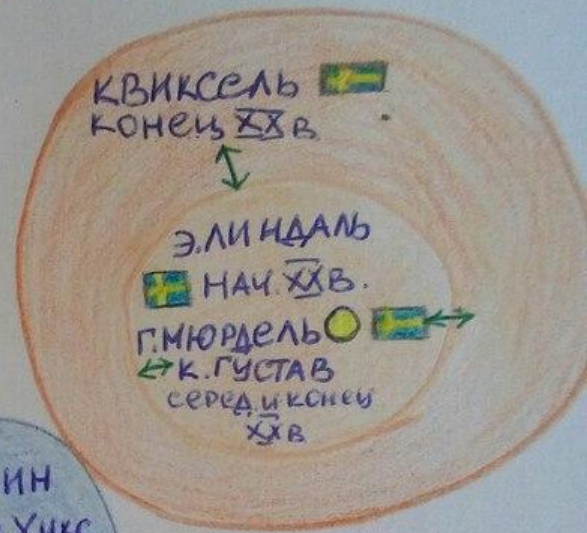 КВИКСЕЛЬ
КОНЕЦ XX В
Э.ЛИНДАЛЬ
НАЧ. XX В.
Г.МЮРДЕЛЬ
К.ГУСТАВ
СЕРЕД.И КОНЕЦ
XX В
ИН
ХИКС